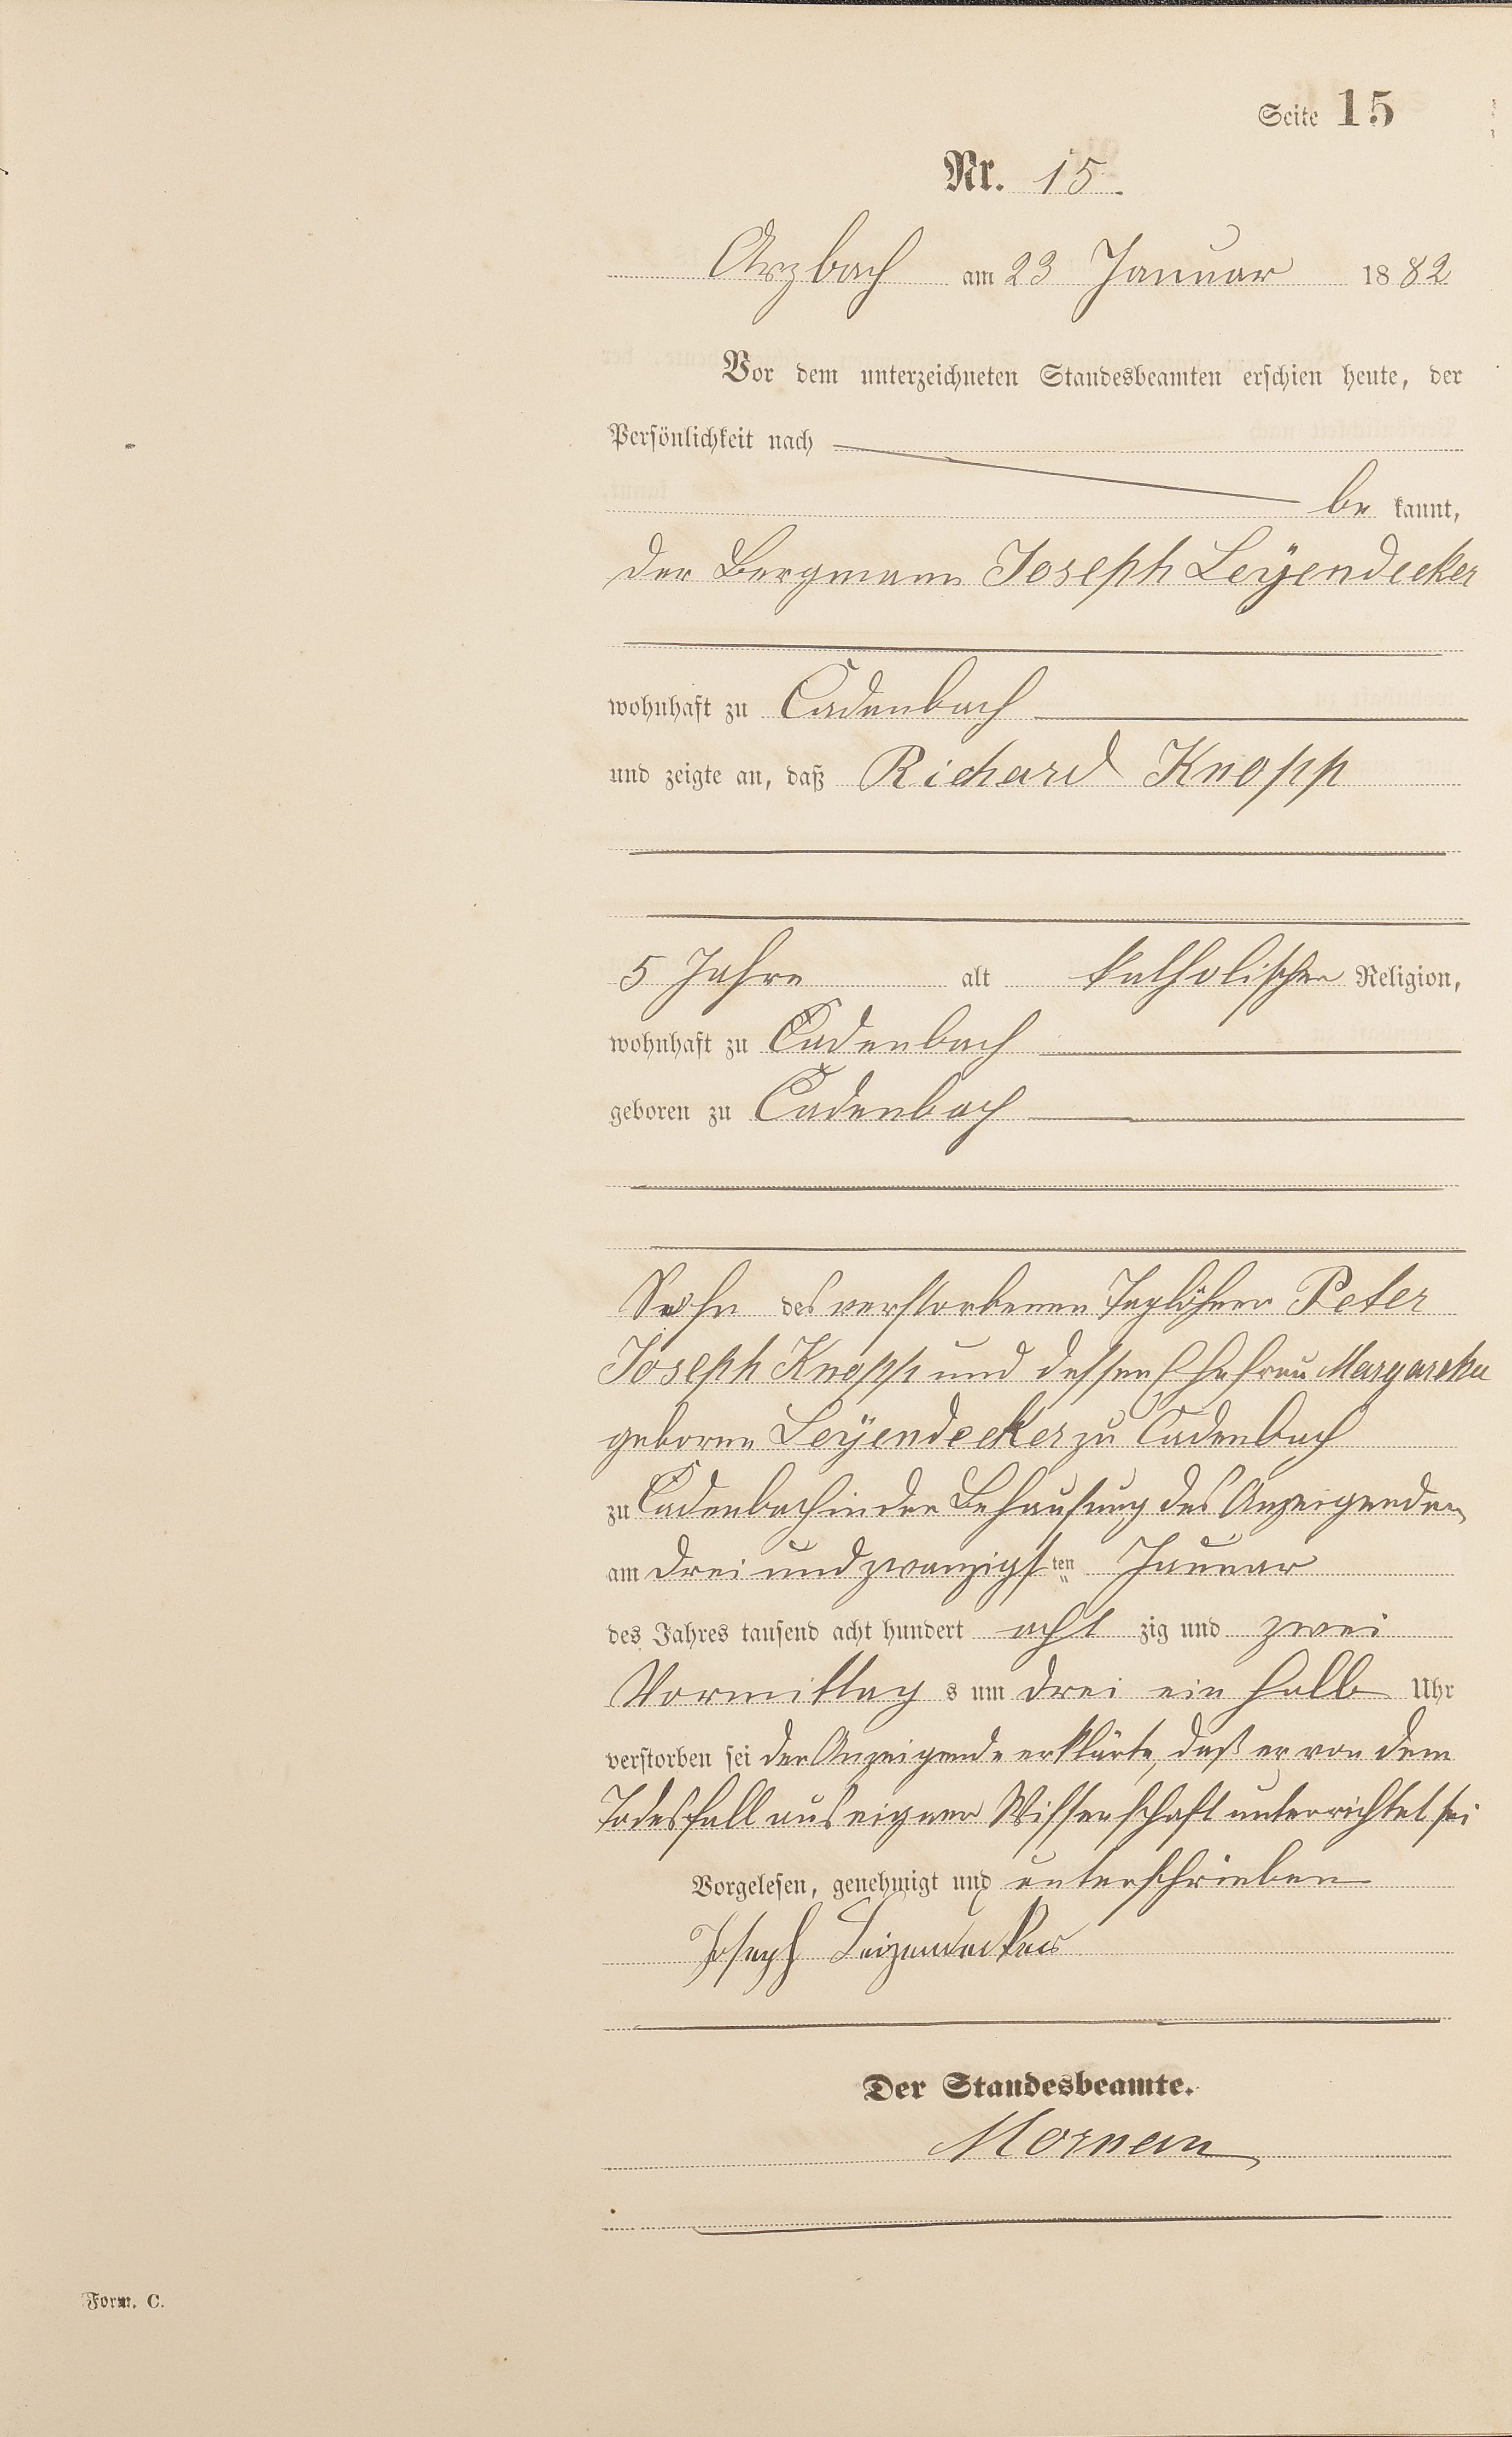 Seite 15
Nr. 15.
Arzbach am 23 Januar 1882
Vor dem unterzeichneten Standesbeamten erschien heute, der
Persönlichkeit nach
be kannt,
der Bergmann Joseph Leÿendecker
wohnhaft zu Cadenbach
und zeigte an, daß Richard Knopp
5 Jahre alt katholischer Religion,
wohnhaft zu Cadenbach
geboren zu Cadenbach
Sohn des verstorbenen Taglöhner Peter
Joseph Knopp und dessen Ehefrau Margaretha
geborne Leÿendecker zu Cadenbach
zu Cadenbach in der Behausung des Anzeigenden
am drei und zwanzigsten Januar
des Jahres tausend acht hundert acht zig und zwei
Vormittag s um drei ein halb Uhr
verstorben sei der Anzeigende erklärte, daß er von dem
Todesfall aus eigner Wissenschaft unterrichtet sei
Vorgelesen, genehmigt und unterschrieben
Joseph Leizendecker
Der Standesbeamte.
Form. C.